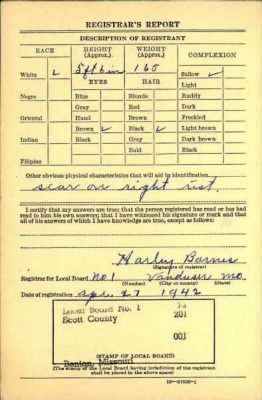 REGISTRAR'S REPORT
DESCRIPTION OF REGISTRANT
RACE HEIGHT (Approx.) WEIGHT (Approx.) COMPLEXION
5 ft 6 in 165
White ✓ EYES HAIR Sallow ✓
Light
Negro Blue Blonde Ruddy
Gray Red Dark
Oriental Hazel Brown Freckled
Brown ✓ Black ✓ Light brown
Indian Black Gray Dark brown
Bald Black
Filipino
Other obvious physical characteristics that will aid in identification
scar on right rist.
I certify that my answers are true; that the person registered has read or has had
read to him his own answers; that I have witnessed his signature or mark and that
all of his answers of which I have knowledge are true, except as follows:
Harley Barnes
(Signature of registrar)
Registrar for Local Board No 1 Vanduser Mo.
(Number) (City or county) (State)
Date of registration Apr. 27 1942
Local Board No. 1
201
Scott County
001
Benton, Missouri
(STAMP OF LOCAL BOARD)
(The stamp of the Local Board having jurisdiction of the registrant
shall be placed in the above space)